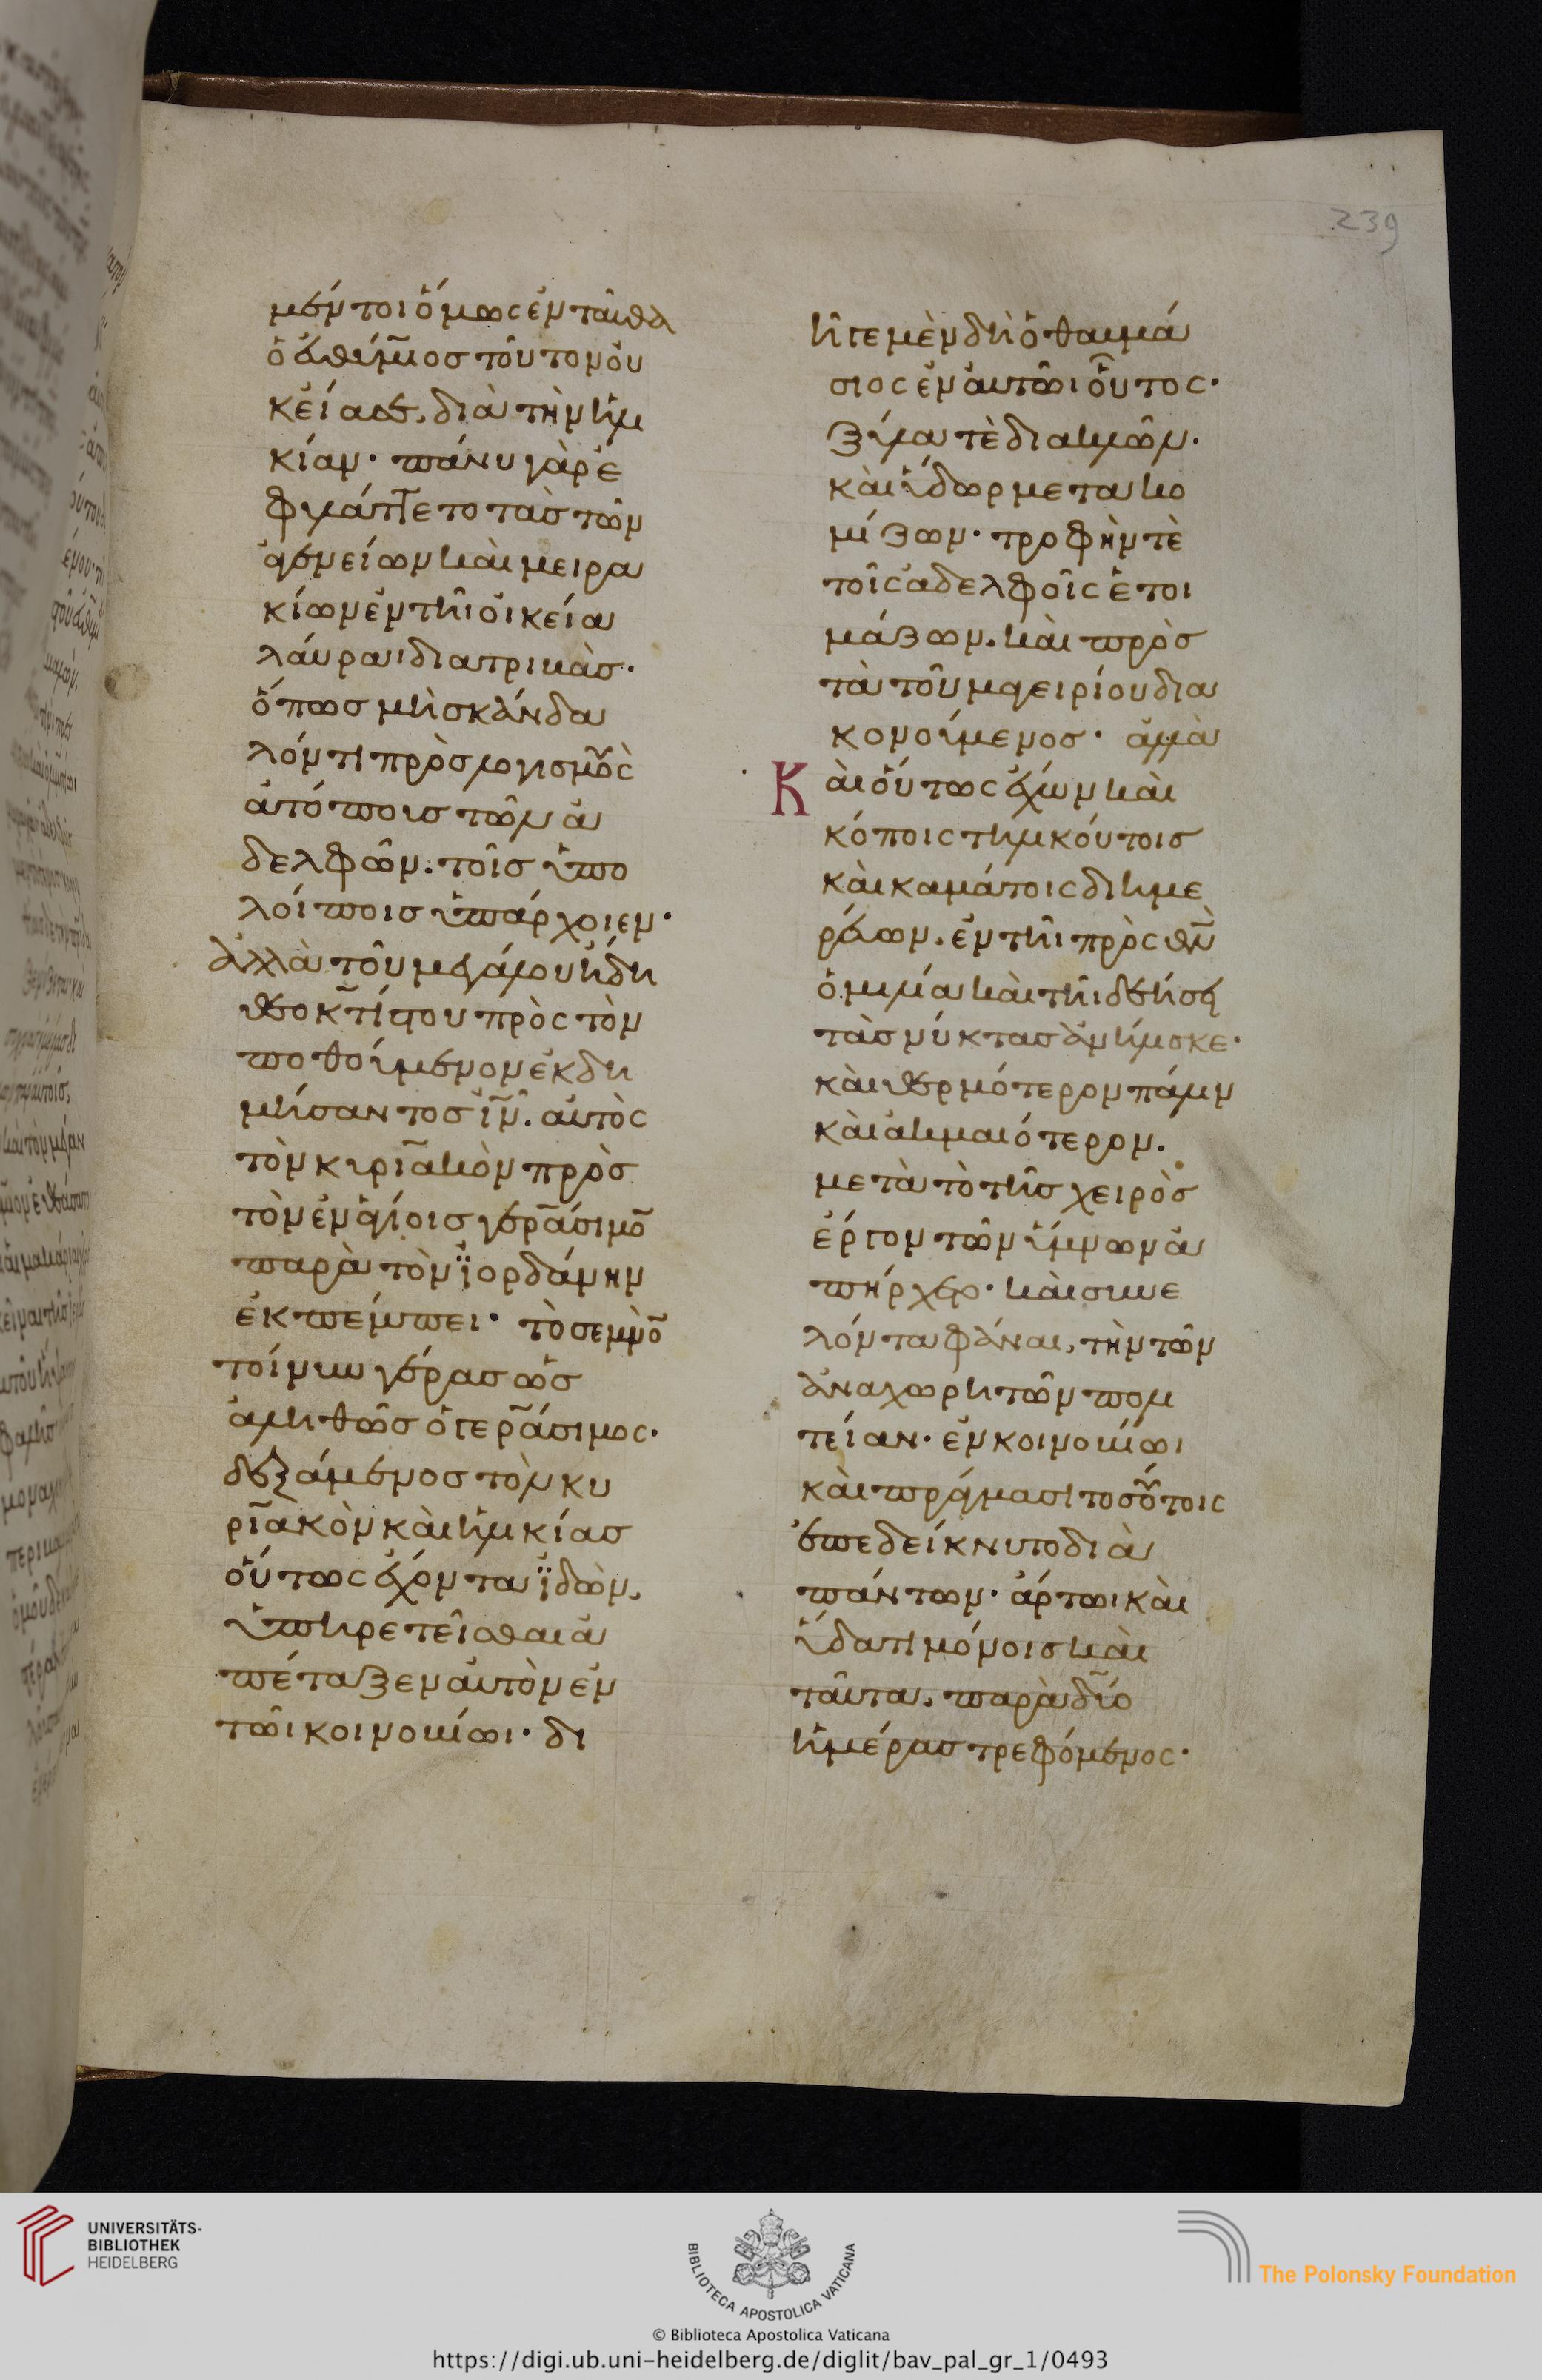 μέντοι ὅμως ἐνταῦθα
ὁ εὐθύμιος τοῦτον οὐ
κ εἴασε, διὰ τὴν ἡλι
κίαν· πάνυ γὰρ ἐ
φυλάττετο τὰς τῶν
ἀγενείων καὶ μειρα
κίων ἐν τῆι οἰκεία
λαύραι διατριβὰς·
ὅπως μὴ σκάνδα
λόν τι πρὸς λογισμοῖς
ἀτόποις τῶν ἀ
δελφῶν. τοῖς ὑπο
λοίποις ὑπάρχοιεν·
ἀλλὰ τοῦ μεγάλου ἤδη
θεοκτίστου πρὸς τὸν
ποθούμενον ἐκδη
μήσαντος ἰν̄. αὐτὸς
τὸν κυριακὸν πρὸς
τὸν ἐν ἁγίοις γεράσιμο̄
παρὰ τὸν ϊορδάνην
ἐκπέμπει· τὸ σεμνὸ̄
τοίνυν γέρας ὡς
ἀληθῶς ὁ γεράσιμος·
δεξάμενος τὸν κυ
ριακὸν καὶ ἡλικίας
οὕτως ἔχοντα ϊδὼν,
ὑπηρετεῖσθαι ἀ
πέταξεν αὐτὸν ἐν
τῶι κοινοβίωι· δι
ῆγε μὲν δὴ ὁ θαυμά
σιος ἐν αὐτῶι οὗτος·
ξύλα τὲ διακλῶν·
καὶ ὕδωρ μετακο
μίζων· τροφὴν τὲ
τοῖς ἀδελφοῖς ἑτοι
μάζων. καὶ πρὸς
τὰ τοῦ μαγειρίου δια
κονούμενος· ἀλλὰ
Καὶ οὕτως ἔχων καὶ
κόποις τηλικούτοις
καὶ καμάτοις διημε
ρεύων. ἐν τῆι πρὸς θν̄
ὁμιλία καὶ τῆι δεήσει
τὰς νύκτας ἀνήλισκε·
καὶ θερμότερον πάλιν
καὶ ἀκμαιότερον.
μετὰ τὸ τῆς χειρὸς
ἔργον τῶν ὕμνων ἀ
πήρχετο· καὶ συνε
λόντα φάναι, τὴν τῶν
ἀναχωρητῶν πολι
τείαν· ἐν κοινοβίωι
καὶ πράγμασι τοσούτοις
ἐπεδείκνυτο διὰ
πάντων· ἄρτωι καὶ
ὕδατι μόνοις καὶ
ταῦτα, παρὰ δύο
ἡμέρας τρεφόμενος·
239
UNIVERSITÄTS-
BIBLIOTHEK
HEIDELBERG
BIBLIOTECA APOSTOLICA VATICANA
The Polonsky Foundation
© Biblioteca Apostolica Vaticana
https://digi.ub.uni-heidelberg.de/diglit/bav_pal_gr_1/0493